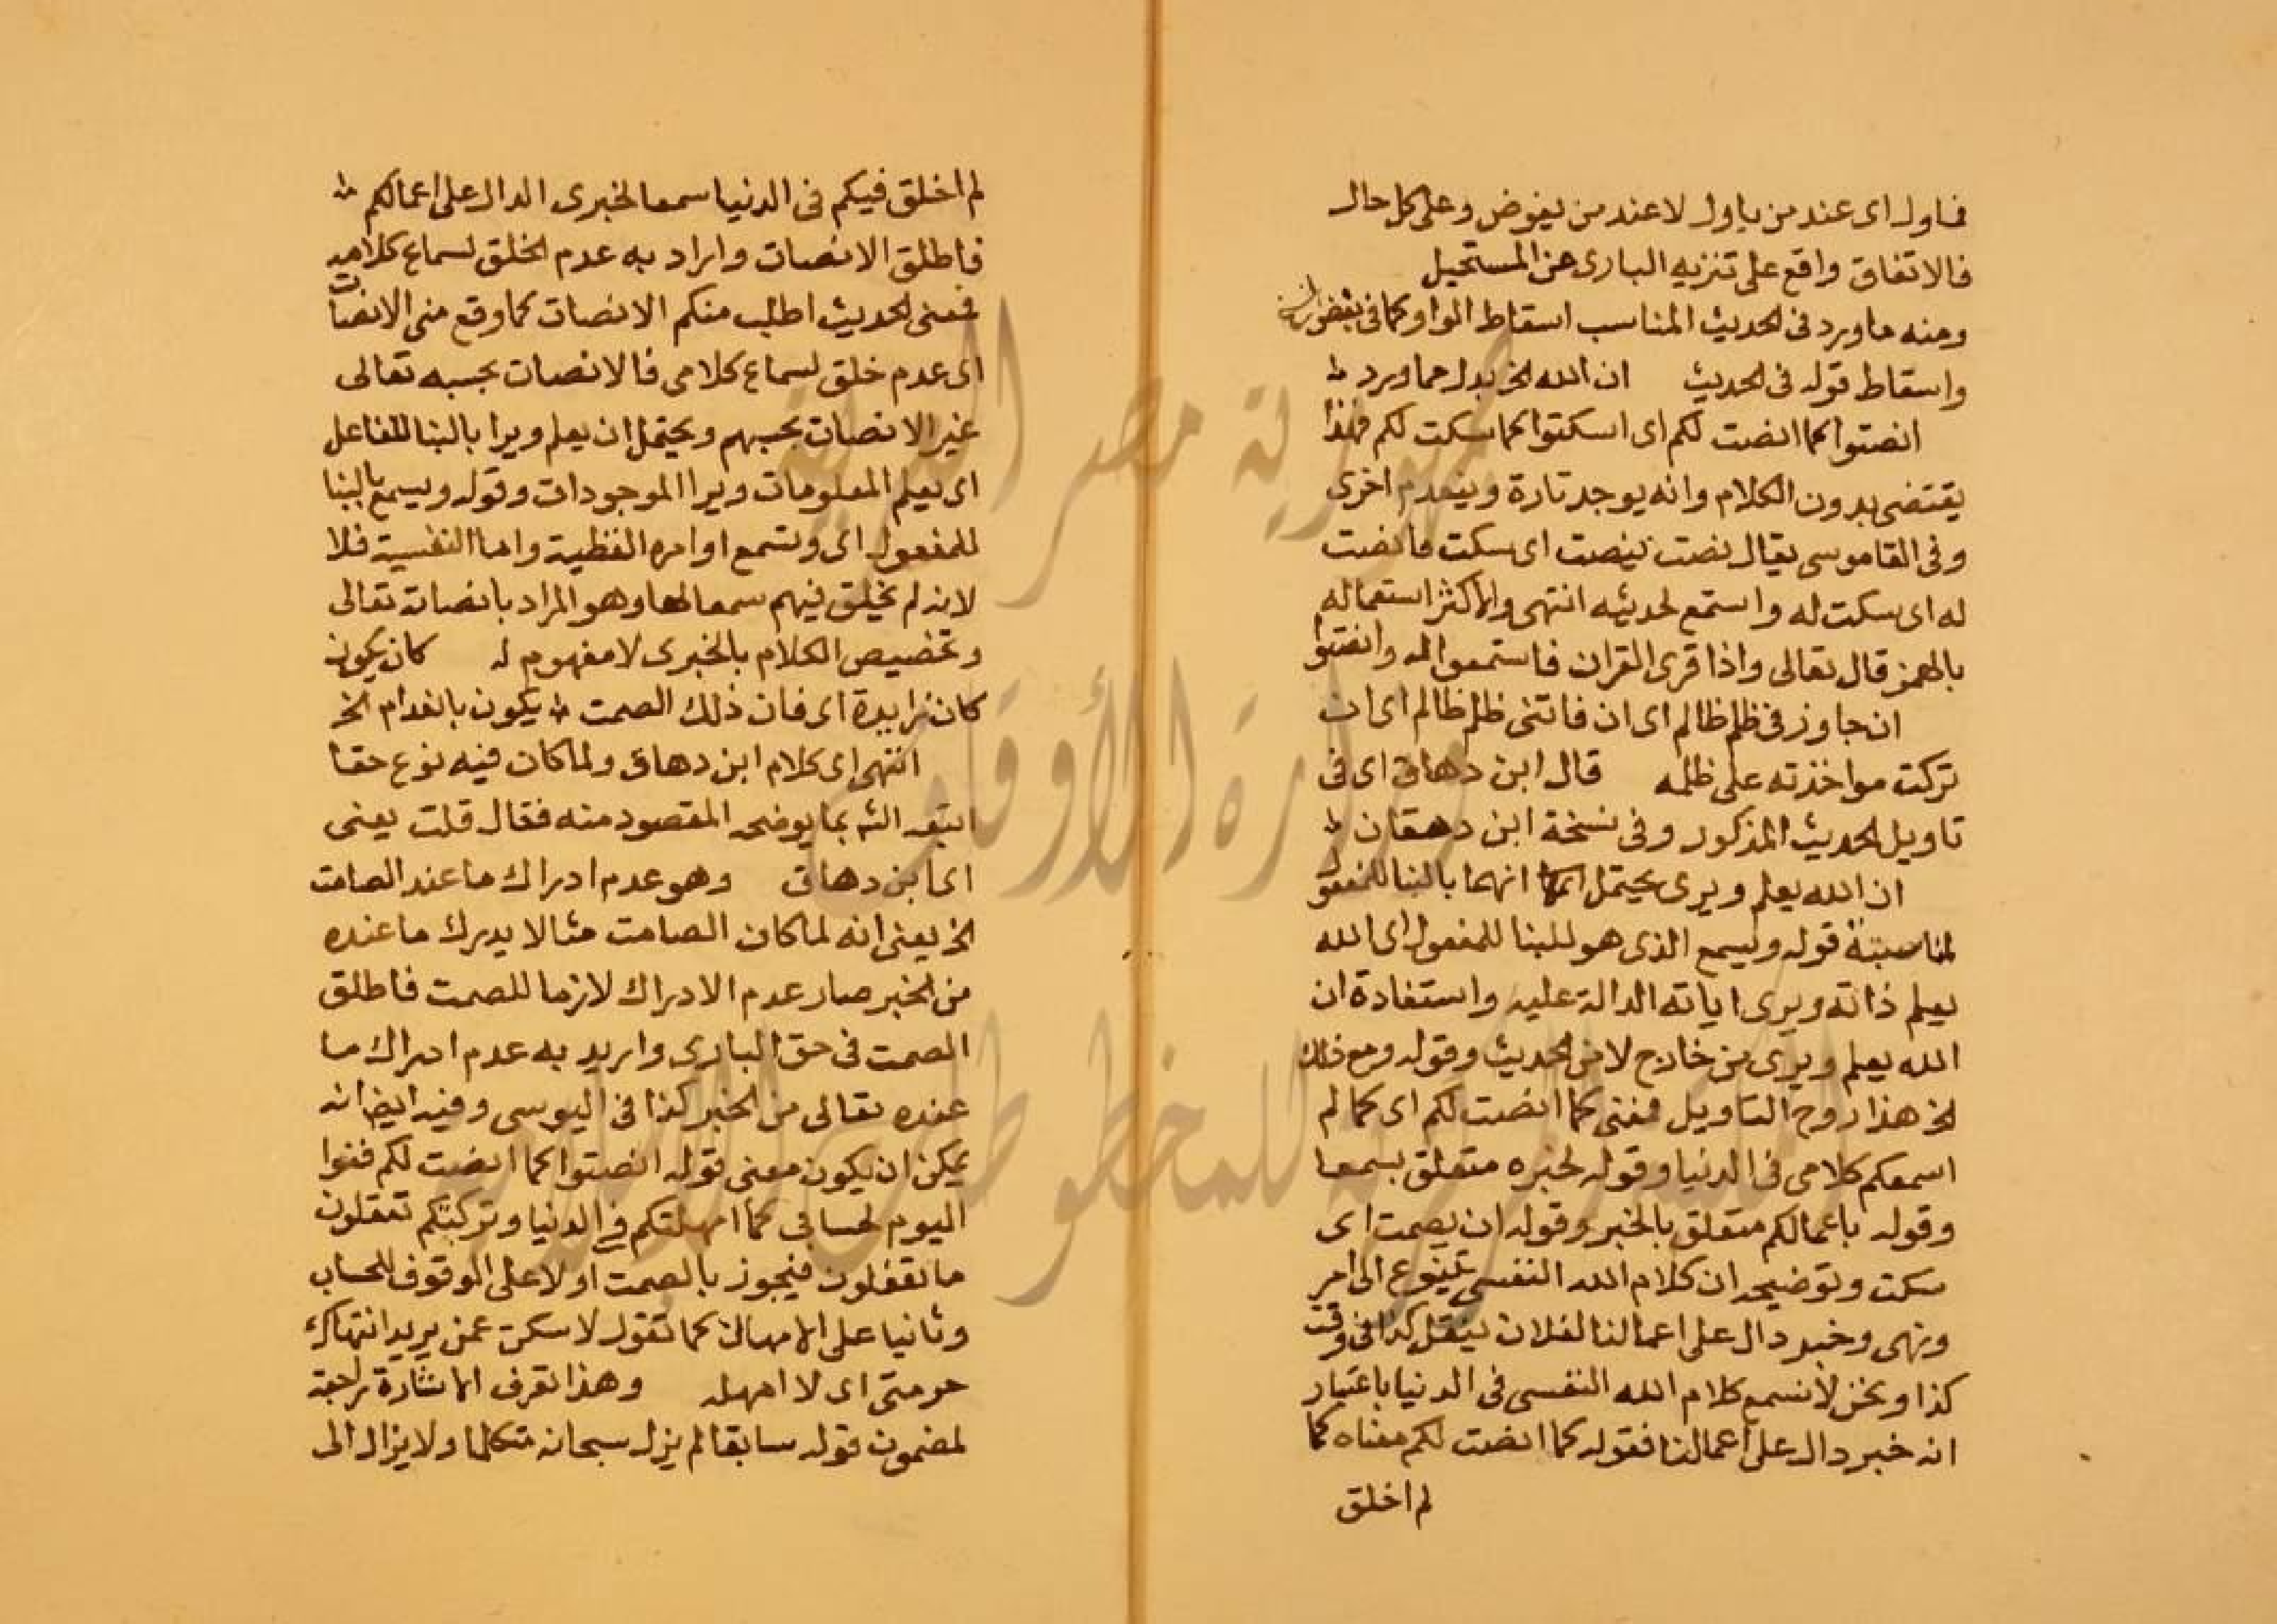 فاول اى عند من ياول لا عند من يفوض وعلى كل حال
فالاتفاق واقع على تنزيه البارى عن المستحيل
ومنه ما ورد فى الحديث المناسب اسقاط الواو كما فى بعض
واسقاط قوله فى الحديث ان الله الخ بدل مما ورد
انصتوا كما انصت لكم اى اسكتوا كما سكت لكم فهذا
يقتضى بدون الكلام وانه يوجد تارة وينعدم اخرى
وفى القاموس يقال نصت ينصت اى سكت فانصت
له اى سكت له واستمع لحديثه انتهى والاكثر استعماله
بالهمز قال تعالى واذا قرى القران فاستمعوا له وانصتوا
ان جاوز فى ظلم ظالم اى ان فاتنى ظلم ظالم اى ان
تركت مواخذته على ظلمه قال ابن دهاق اى فى
تاويل الحديث المذكور وفى نسخة ابن دهقان
ان الله يعلم ويرى يحتمل انهما بالبنا للمفعول
لمناسبة قوله وليسمع الذى هو للبنا للمفعول اى الله
يعلم ذاته ويرى اياته الدالة عليه واستفادة ان
الله يعلم ويرى من خارج لا من الحديث وقوله ومع ذلك
الخ هذا روح التاويل فمعنى كما انصت لكم اى كما لم
اسمعكم كلامى فى الدنيا وقوله لخبره متعلق بسمعا
وقوله باعمالكم متعلق بالخبر وقوله ان يصمت اى
سكت وتوضيحه ان كلام الله النفسى يتنوع الى امر
ونهى وخبر دال على اعمالنا لفلان يفعل كذا فى وقت
كذا ونحن لا نسمع كلام الله النفسى فى الدنيا باعتبار
انه خبر دال على اعمالنا فقوله كما انصت لكم معناه كما
لم اخلق
لم اخلق فيكم فى الدنيا سمعا لخبرى الدال على اعمالكم
فاطلق الانصات واراد به عدم الخلق لسماع كلامه
فمعنى الحديث اطلب منكم الانصات كما وقع منى الانصات
اى عدم خلق لسماع كلامى فالانصات بحسبه تعالى
غير الانصات بحسبهم ويحتمل ان يعلم ويرا بالبنا للفاعل
اى يعلم المعلومات ويرا الموجودات وقوله ويسمع بالبنا
للمفعول اى وتسمع اوامره اللفظية واما النفسية فلا
لانه لم يخلق فيهم سمعا لها وهو المراد بانصاته تعالى
وتخصيص الكلام بالخبرى لا مفهوم له كان يكون
كان زايدة اى فان ذلك الصمت يكون بانعدام الخ
انتهى اى كلام ابن دهاق ولما كان فيه نوع خفا
اتبعه الش بما يوضحه المقصود منه فقال قلت يعنى
اى ابن دهاق وهو عدم ادراك ما عند الصامت
الخ يعنى انه لما كان الصامت مثالا يدرك ما عنده
من الخبر صار عدم الادراك لازما للصمت فاطلق
الصمت فى حق البارى واريد به عدم ادراك ما
عنده تعالى من الخبر كذا فى اليوسى وفيه ايضا انه
يمكن ان يكون معنى قوله انصتوا كما انصت لكم قفوا
اليوم لحسابى كما امهلتكم فى الدنيا وتركتكم تفعلون
ما تفعلون فيجوز بالصمت اولا على الوقوف للحساب
وثانيا على الامهال كما تقول لا سكت عمن يريد انتهاك
حرمتى اى لا امهله وهذا تعرف الاشارة راجعة
لمضمون قوله سابقا لم يزل سبحانه متكلما ولا يزال الى